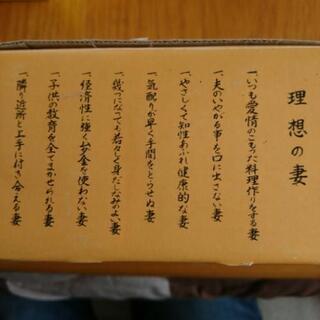 理想の妻
一、いつも愛情のこもった料理作りをする妻
一、夫のいやがる事を口に出さない妻
一、やさしくて知性あふれ健康的な妻
一、気配りが早く手間をとらせぬ妻
一、幾つになっても若々しく身だしなみのよい妻
一、経済性に強くムダ金を使わない妻
一、子供の教育を全てまかせられる妻
一、隣り近所と上手に付き合える妻